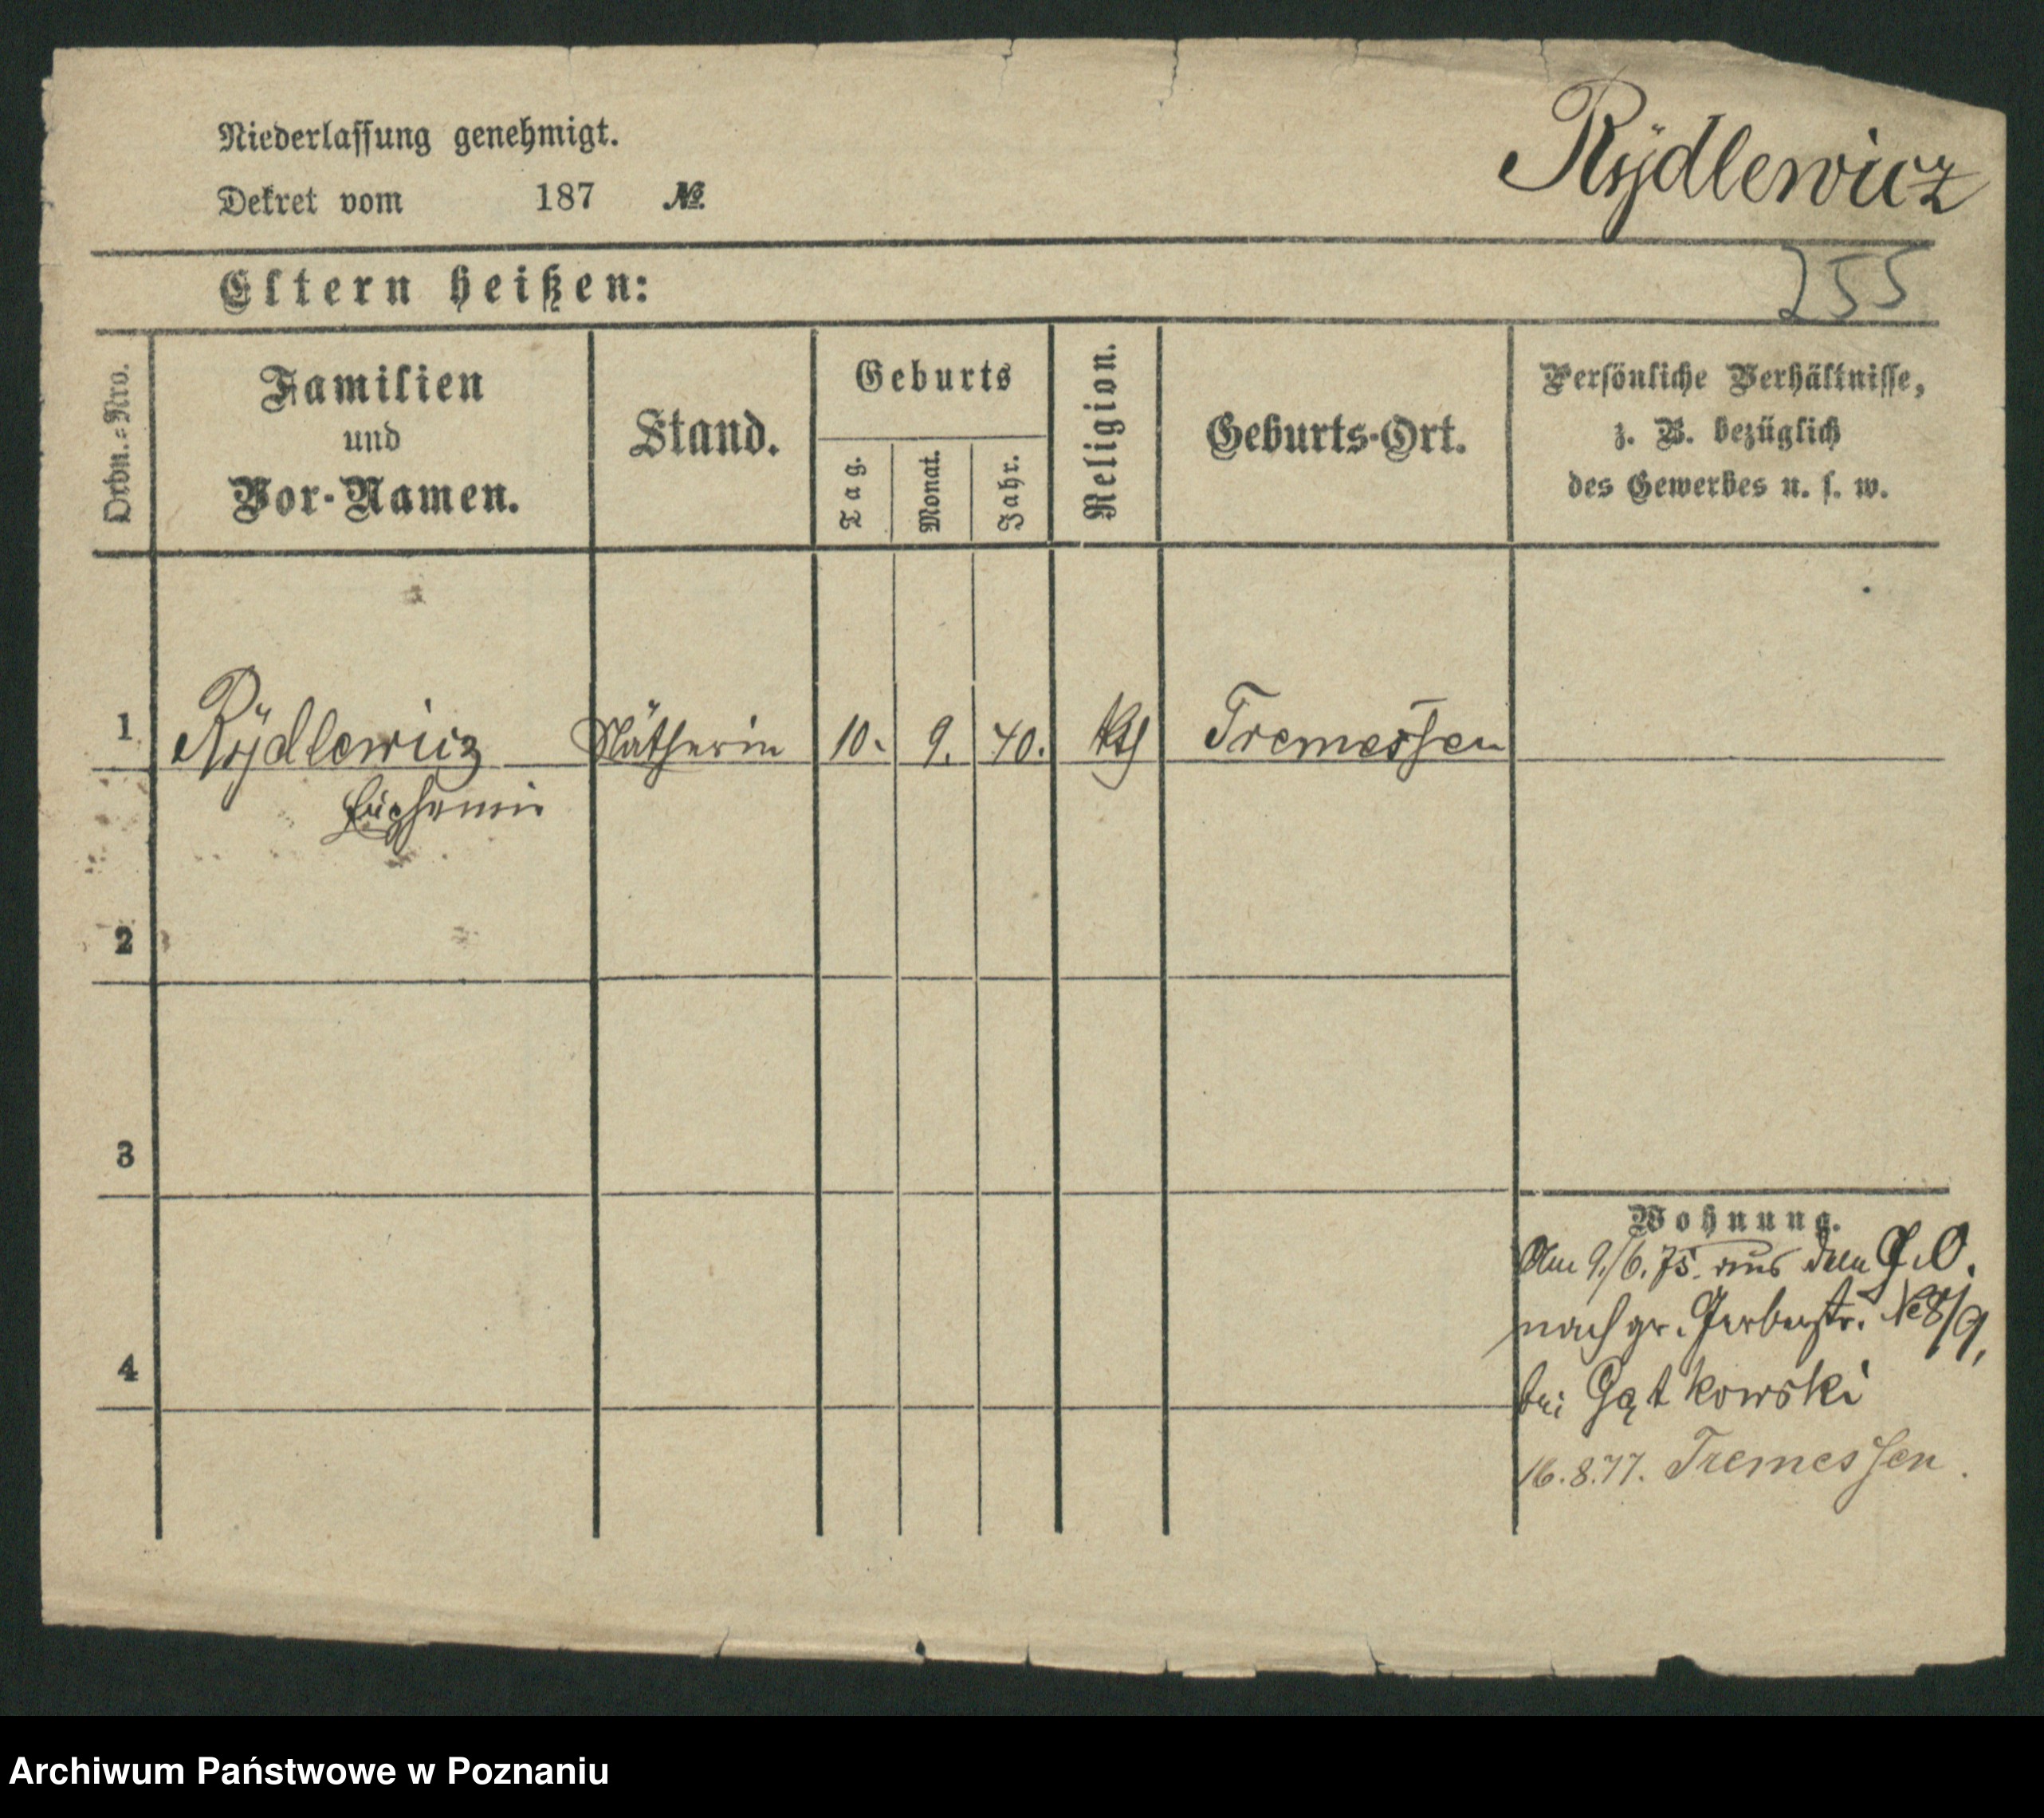 Niederlassung genehmigt.
Rÿdlewicz
Dekret vom 187 №
Eltern heißen:
255
Ordn.=Nro.
Familien
und
Vor-Namen.
Stand.
Geburts
Tag.
Monat.
Jahr.
Religion.
Geburts-Ort.
Persönliche Verhältnisse,
z. B. bezüglich
des Gewerbes u. s. w.
1 Rÿdlewicz Nätherin 10. 9. 40. kth Tremessen
2
3
Wohnung.
Am 9./6. 75. aus dem G.O.
nach gr. Gerberstr. № 8/9,
4
bei Gątkowski
16.8.77. Tremessen.
Archiwum Państwowe w Poznaniu